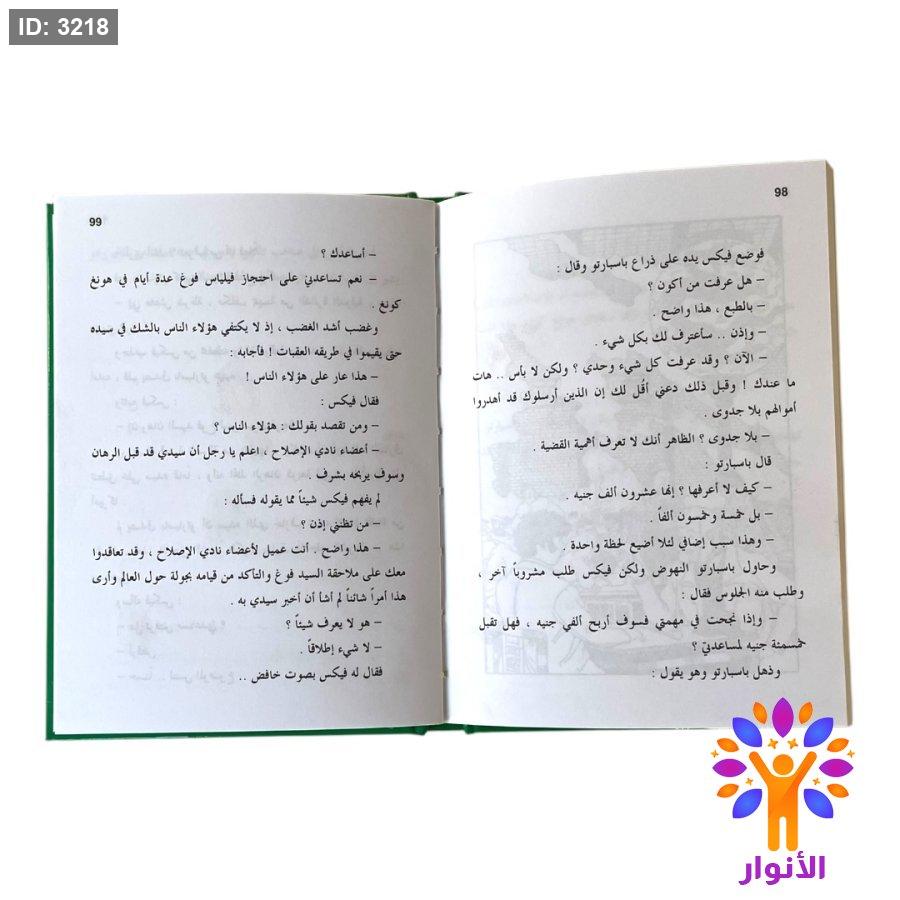 ID: 3218
98
فوضع فيكس يده على ذراع باسبارتو وقال :
– هل عرفت من أكون ؟
– بالطبع ، هذا واضح .
– وإذن .. سأعترف لك بكل شيء .
– الآن ؟ وقد عرفت كل شيء وحدي ؟ ولكن لا بأس .. هات
ما عندك ! وقبل ذلك دعني أقُل لك إن الذين أرسلوك قد أهدروا
أموالهم بلا جدوى .
– بلا جدوى ؟ الظاهر أنك لا تعرف أهمية القضية .
قال باسبارتو :
– كيف لا أعرفها ؟ إنها عشرون ألف جنيه .
– بل خمسة وخمسون ألفاً .
– وهذا سبب إضافي لئلا أضيع لحظة واحدة .
وحاول باسبارتو النهوض ولكن فيكس طلب مشروباً آخر ،
وطلب منه الجلوس فقال :
– وإذا نجحت في مهمتي فسوف أربح ألفي جنيه ، فهل تقبل
خمسمئة جنيه لمساعدتيّ ؟
وذهل باسبارتو وهو يقول :
99
– أساعدك ؟
– نعم تساعدنيْ على احتجاز فيلياس فوغ عدة أيام في هونغ
كونغ .
وغضب أشد الغضب ، إذ لا يكتفي هؤلاء الناس بالشك في سيده
حتى يقيموا في طريقه العقبات ! فأجابه :
– هذا عار على هؤلاء الناس !
فقال فيكس :
– ومن تقصد بقولك : هؤلاء الناس ؟
– أعضاء نادي الإصلاح ، اعلم يا رجل أن سيدي قد قبل الرهان
وسوف يربحه بشرف .
لم يفهم فيكس شيئاً مما يقوله فسأله :
– من تظنني إذن ؟
– هذا واضح . أنت عميل لأعضاء نادي الإصلاح ، وقد تعاقدوا
معك على ملاحقة السيد فوغ والتأكد من قيامه بجولة حول العالم وأرى
هذا أمراً شائناً لم أشأ أن أخبر سيدي به .
– هو لا يعرف شيئاً ؟
– لا شيء إطلاقاً .
فقال له فيكس بصوت خافض ..
الأنوار